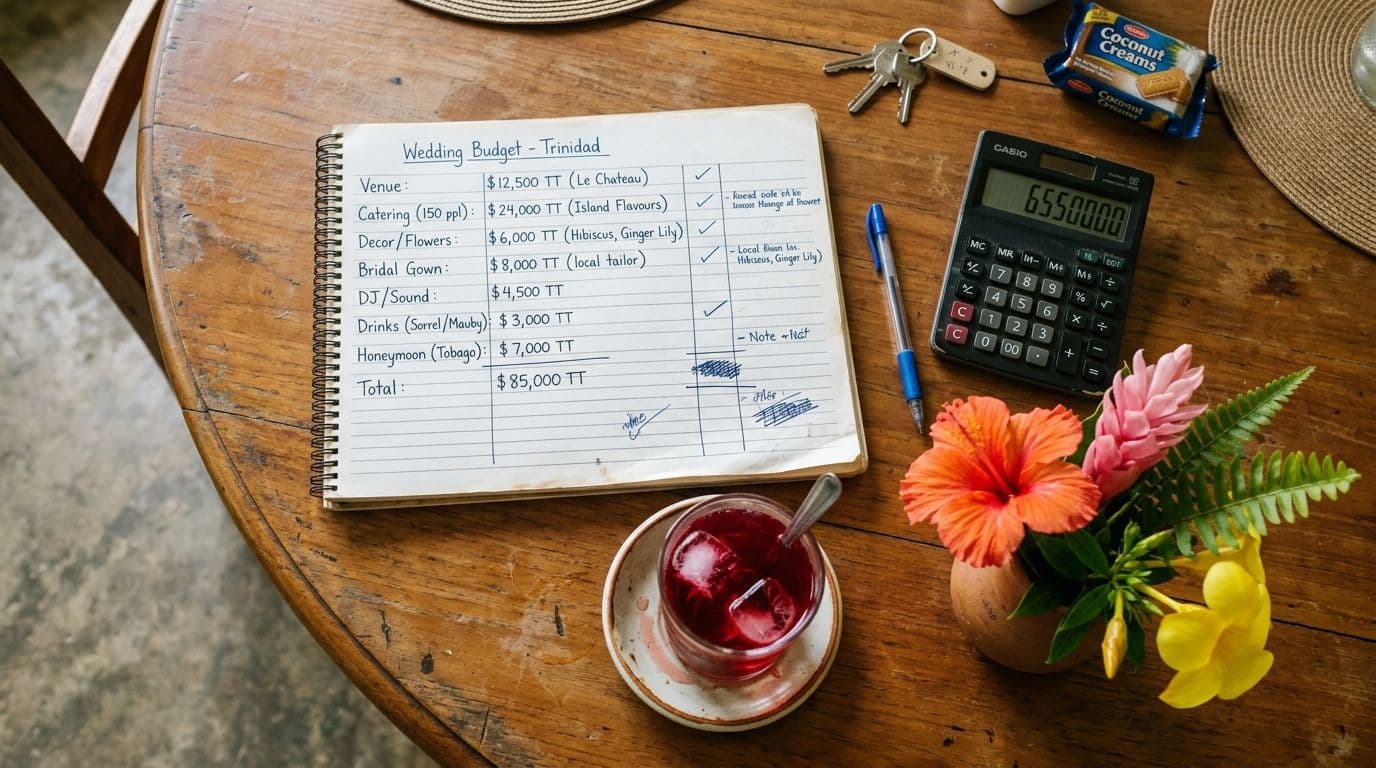 Wedding Budget - Trinidad
Venue: $12,500 TT (Le Chateau) ✓
Catering (150 ppl): $24,000 TT (Island Flavours) ✓
Decor/Flowers: $6,000 TT (Hibiscus, Ginger Lily) ✓
Bridal Gown: $8,000 TT (local tailor) ✓
- Local
Hibiscus, Ginger Lily)
DJ/Sound: $4,500 TT
Drinks (Sorrel/Mauby): $3,000 TT ✓
Honeymoon (Tobago): $7,000 TT
- Note
Total: $85,000 TT
Coconut
Creams
Coconut
Creams
CASIO
6550000
MC MR M+
7 8 9 % √
4 5 6 × ÷
C 1 2 3
C 0 00 . + =